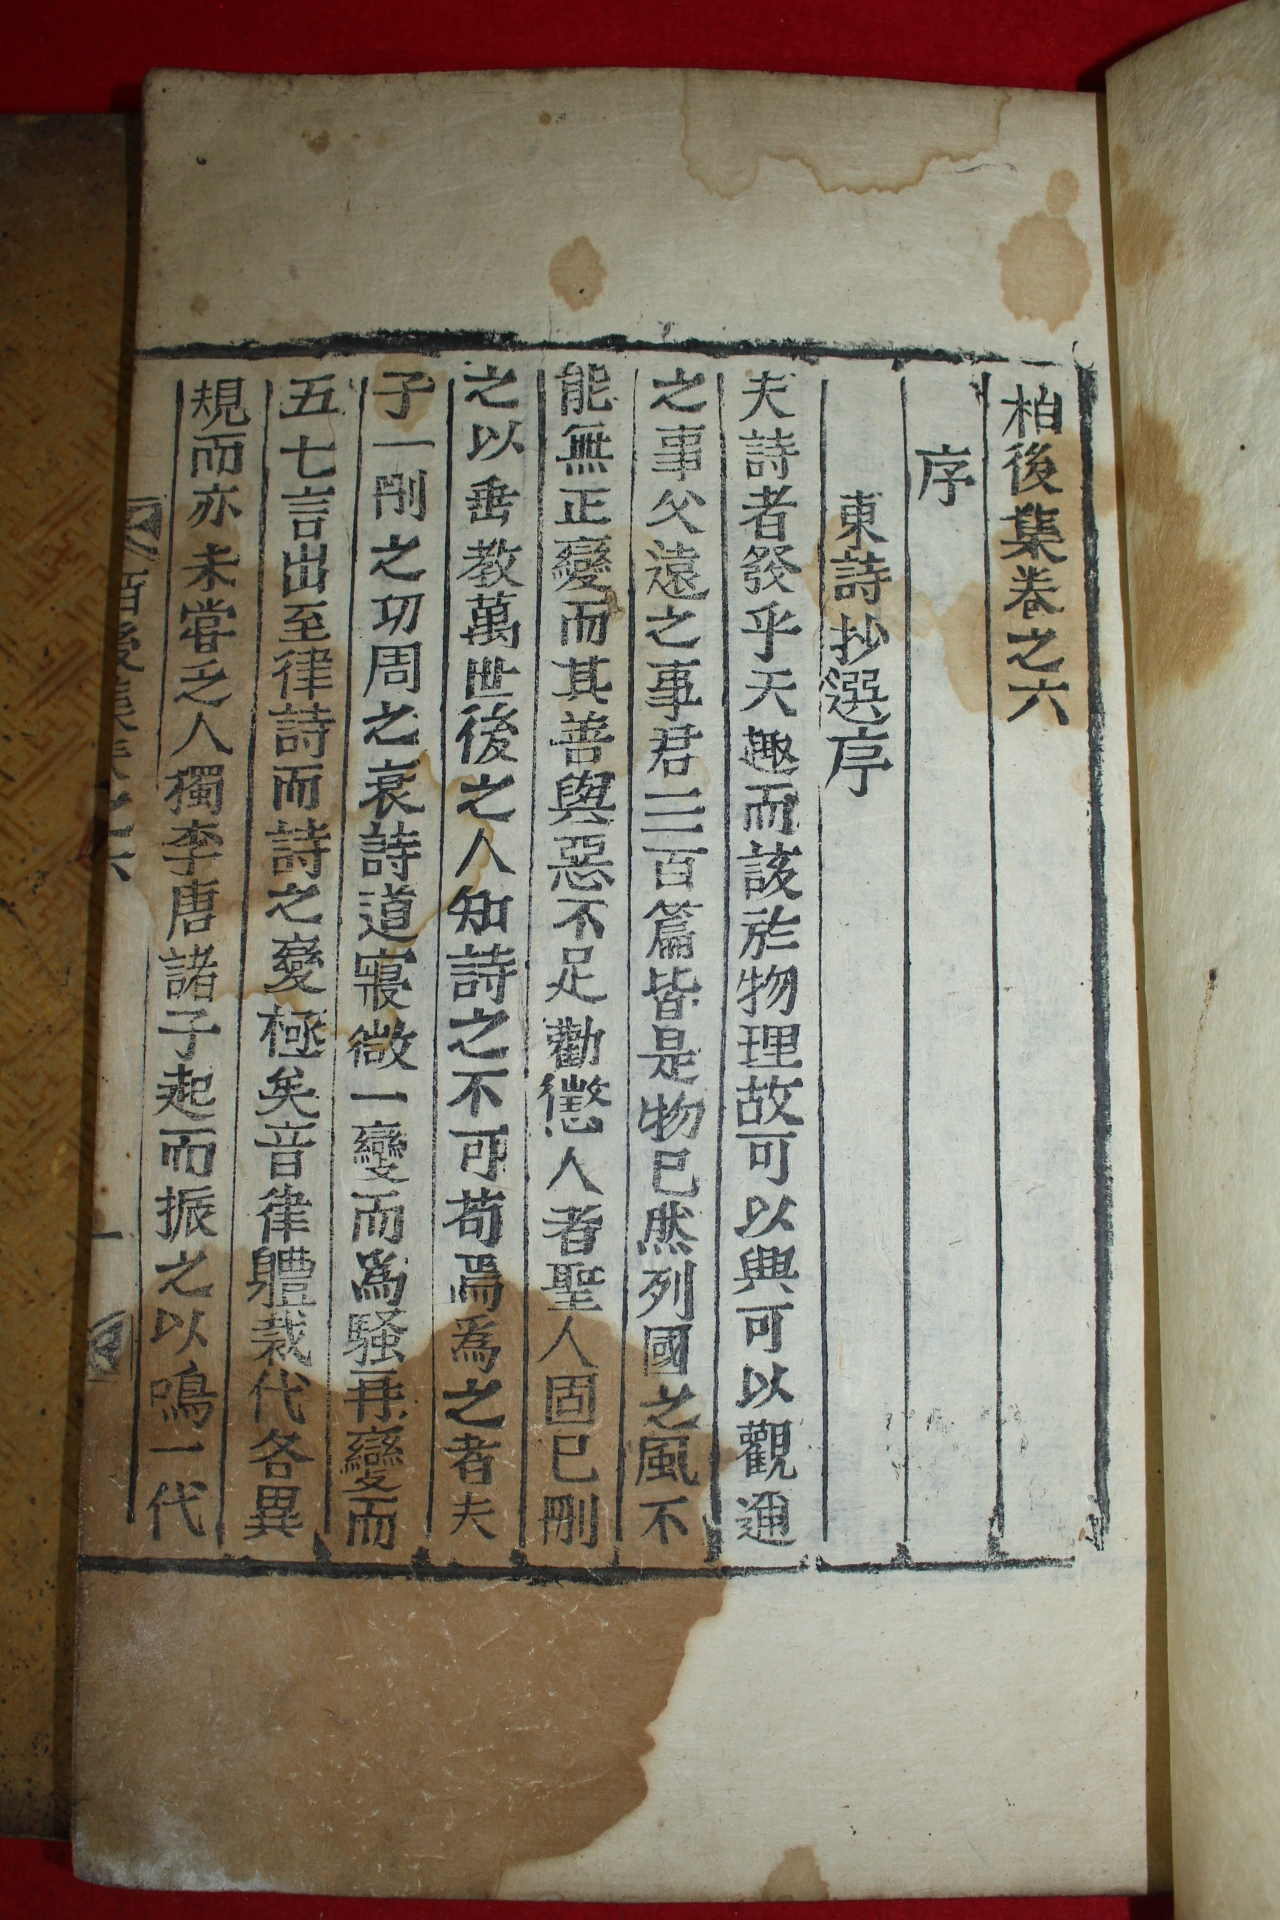 柏後集卷之六
序
東詩抄選序
夫詩者發乎天趣而該於物理故可以興可以觀邇
之事父遠之事君三百篇皆是物已然列國之風不
能無正變而其善與惡不足勸懲人者聖人固已刪
之以垂教萬世後之人知詩之不可苟焉爲之者夫
子一刪之功周之衰詩道寢微一變而爲騷再變而
五七言出至律詩而詩之變極矣音律體裁代各異
規而亦未嘗乏人獨李唐諸子起而振之以鳴一代
柏後集卷之六
一